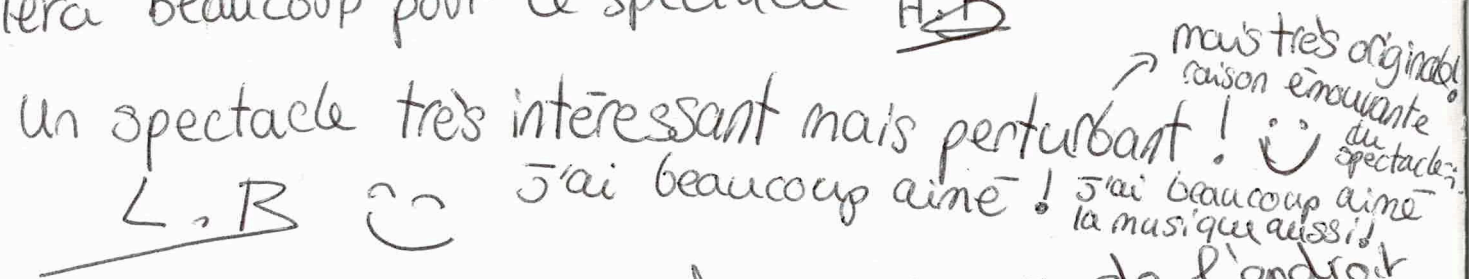 beaucoup pour ce
un spectacle très intéressant mais perturbant ! :)
mais très original!
raison émouvante
du
spectacle;
L.B :) J'ai beaucoup aimé ! J'ai beaucoup aimé
la musique aussi!
de l'endroit